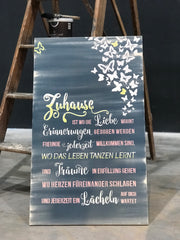 Zuhause
IST WO DIE Liebe WOHNT
Erinnerungen GEBOREN WERDEN
FREUNDE jederzeit WILLKOMMEN SIND,
WO DAS LEBEN TANZEN LERNT
UND Träume IN ERFÜLLUNG GEHEN
WO HERZEN FÜREINANDER SCHLAGEN
UND JEDERZEIT EIN Lächeln AUF DICH
WARTET